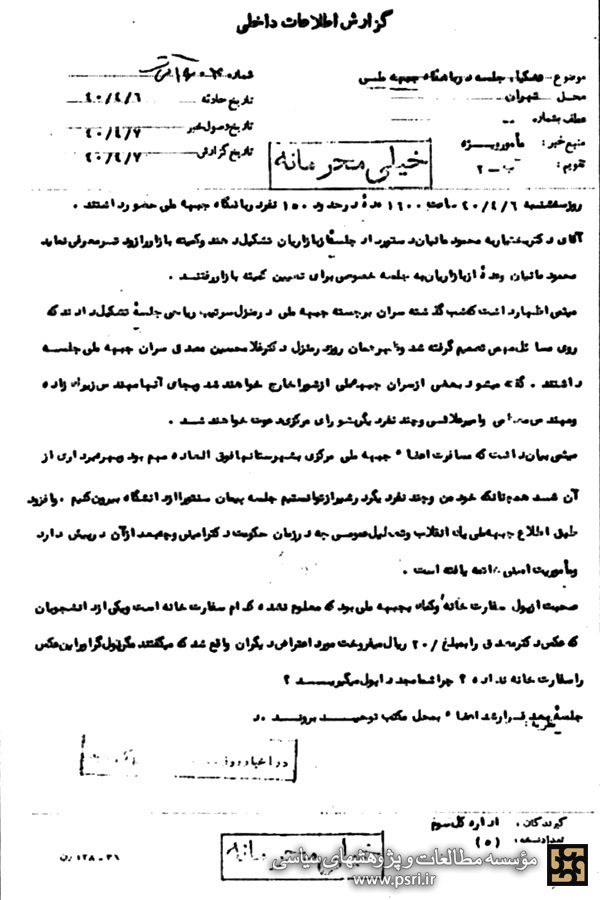 گزارش اطلاعات داخلی
موضوع : جلسه در باشگاه جبهه ملی
شماره
محل تهران
تاریخ حادثه ۴۰/۴/۶
عطف بشماره --
تاریخ وصول خبر ۴۰/۴/۷
منبع خبر : مأمور ویژه
تاریخ گزارش ۴۰/۴/۷
تقویم : ب - ۲
خیلی محرمانه
روز سه‌شنبه ۴۰/۴/۶ ساعت ۱۶۰۰ عدهٔ در حدود ۱۵۰ نفر در باشگاه جبهه ملی حضور داشتند .
آقای دکتر بختیار به محمود مانیان دستور داد جلسهٔ بازاریان تشکیل دهند و کمیته بازار را زودتر معرفی نماید
محمود مانیان و عدهٔ از بازاریان به جلسه خصوصی برای تعیین کمیته بازار رفتند .
میثمی اظهار داشت که شب گذشته سران برجسته جبهه ملی در منزل سرتیپ ریاحی جلسهٔ تشکیل دادند که
روی مسائل تصمیم گرفته شد و روز در منزل دکتر غلامحسین مصدق سران جبهه ملی جلسه
داشتند . گفته میشود بعضی از سران جبهه ملی از شورا خارج خواهند شد و بجای آنها مهندس زیرک زاده
و مهندس و امیرعلائی و چند نفر دیگر بشورای مرکزی دعوت خواهند شد .
میثمی بیان داشت که مسافرت اعضاء جبهه ملی مرکزی بشهرستانها فوق العاده مهم بود و بهره‌برداری از
آن شد همچنانکه خود من و چند نفر دیگر در شیراز توانستیم جلسه پیمان سنتو را از دانشگاه بیرون کنیم . و افزود
طبق اطلاع جبهه ملی یک انقلاب و تعطیل عمومی چه در زمان حکومت دکتر امینی و چه بعد از آن در پیش دارد
و مأموریت امینی خاتمه یافته است .
صحبت از پول سفارت خانه و کمک به جبهه ملی بود که معلوم نشده کدام سفارت خانه است و یکی از دانشجویان
که عکس دکتر مصدق را بمبلغ ۲۰/ ریال میفروخت مورد اعتراض دیگران واقع شد که میگفتند مگر پول گراور این عکس
را سفارت خانه نداده ؟ چرا شما مجدداً پول میگیرید ؟
جلسه بعد قرار شد اعضاء بمحل مکتب توحید بروند . د
نظریه :
در اخبار روز
گیرندگان : اداره کل سوم
تعداد نسخه : (۵)
خیلی محرمانه
۳۶ - ۱۲۸
مؤسسه مطالعات و پژوهشهای سیاسی
www.psri.ir